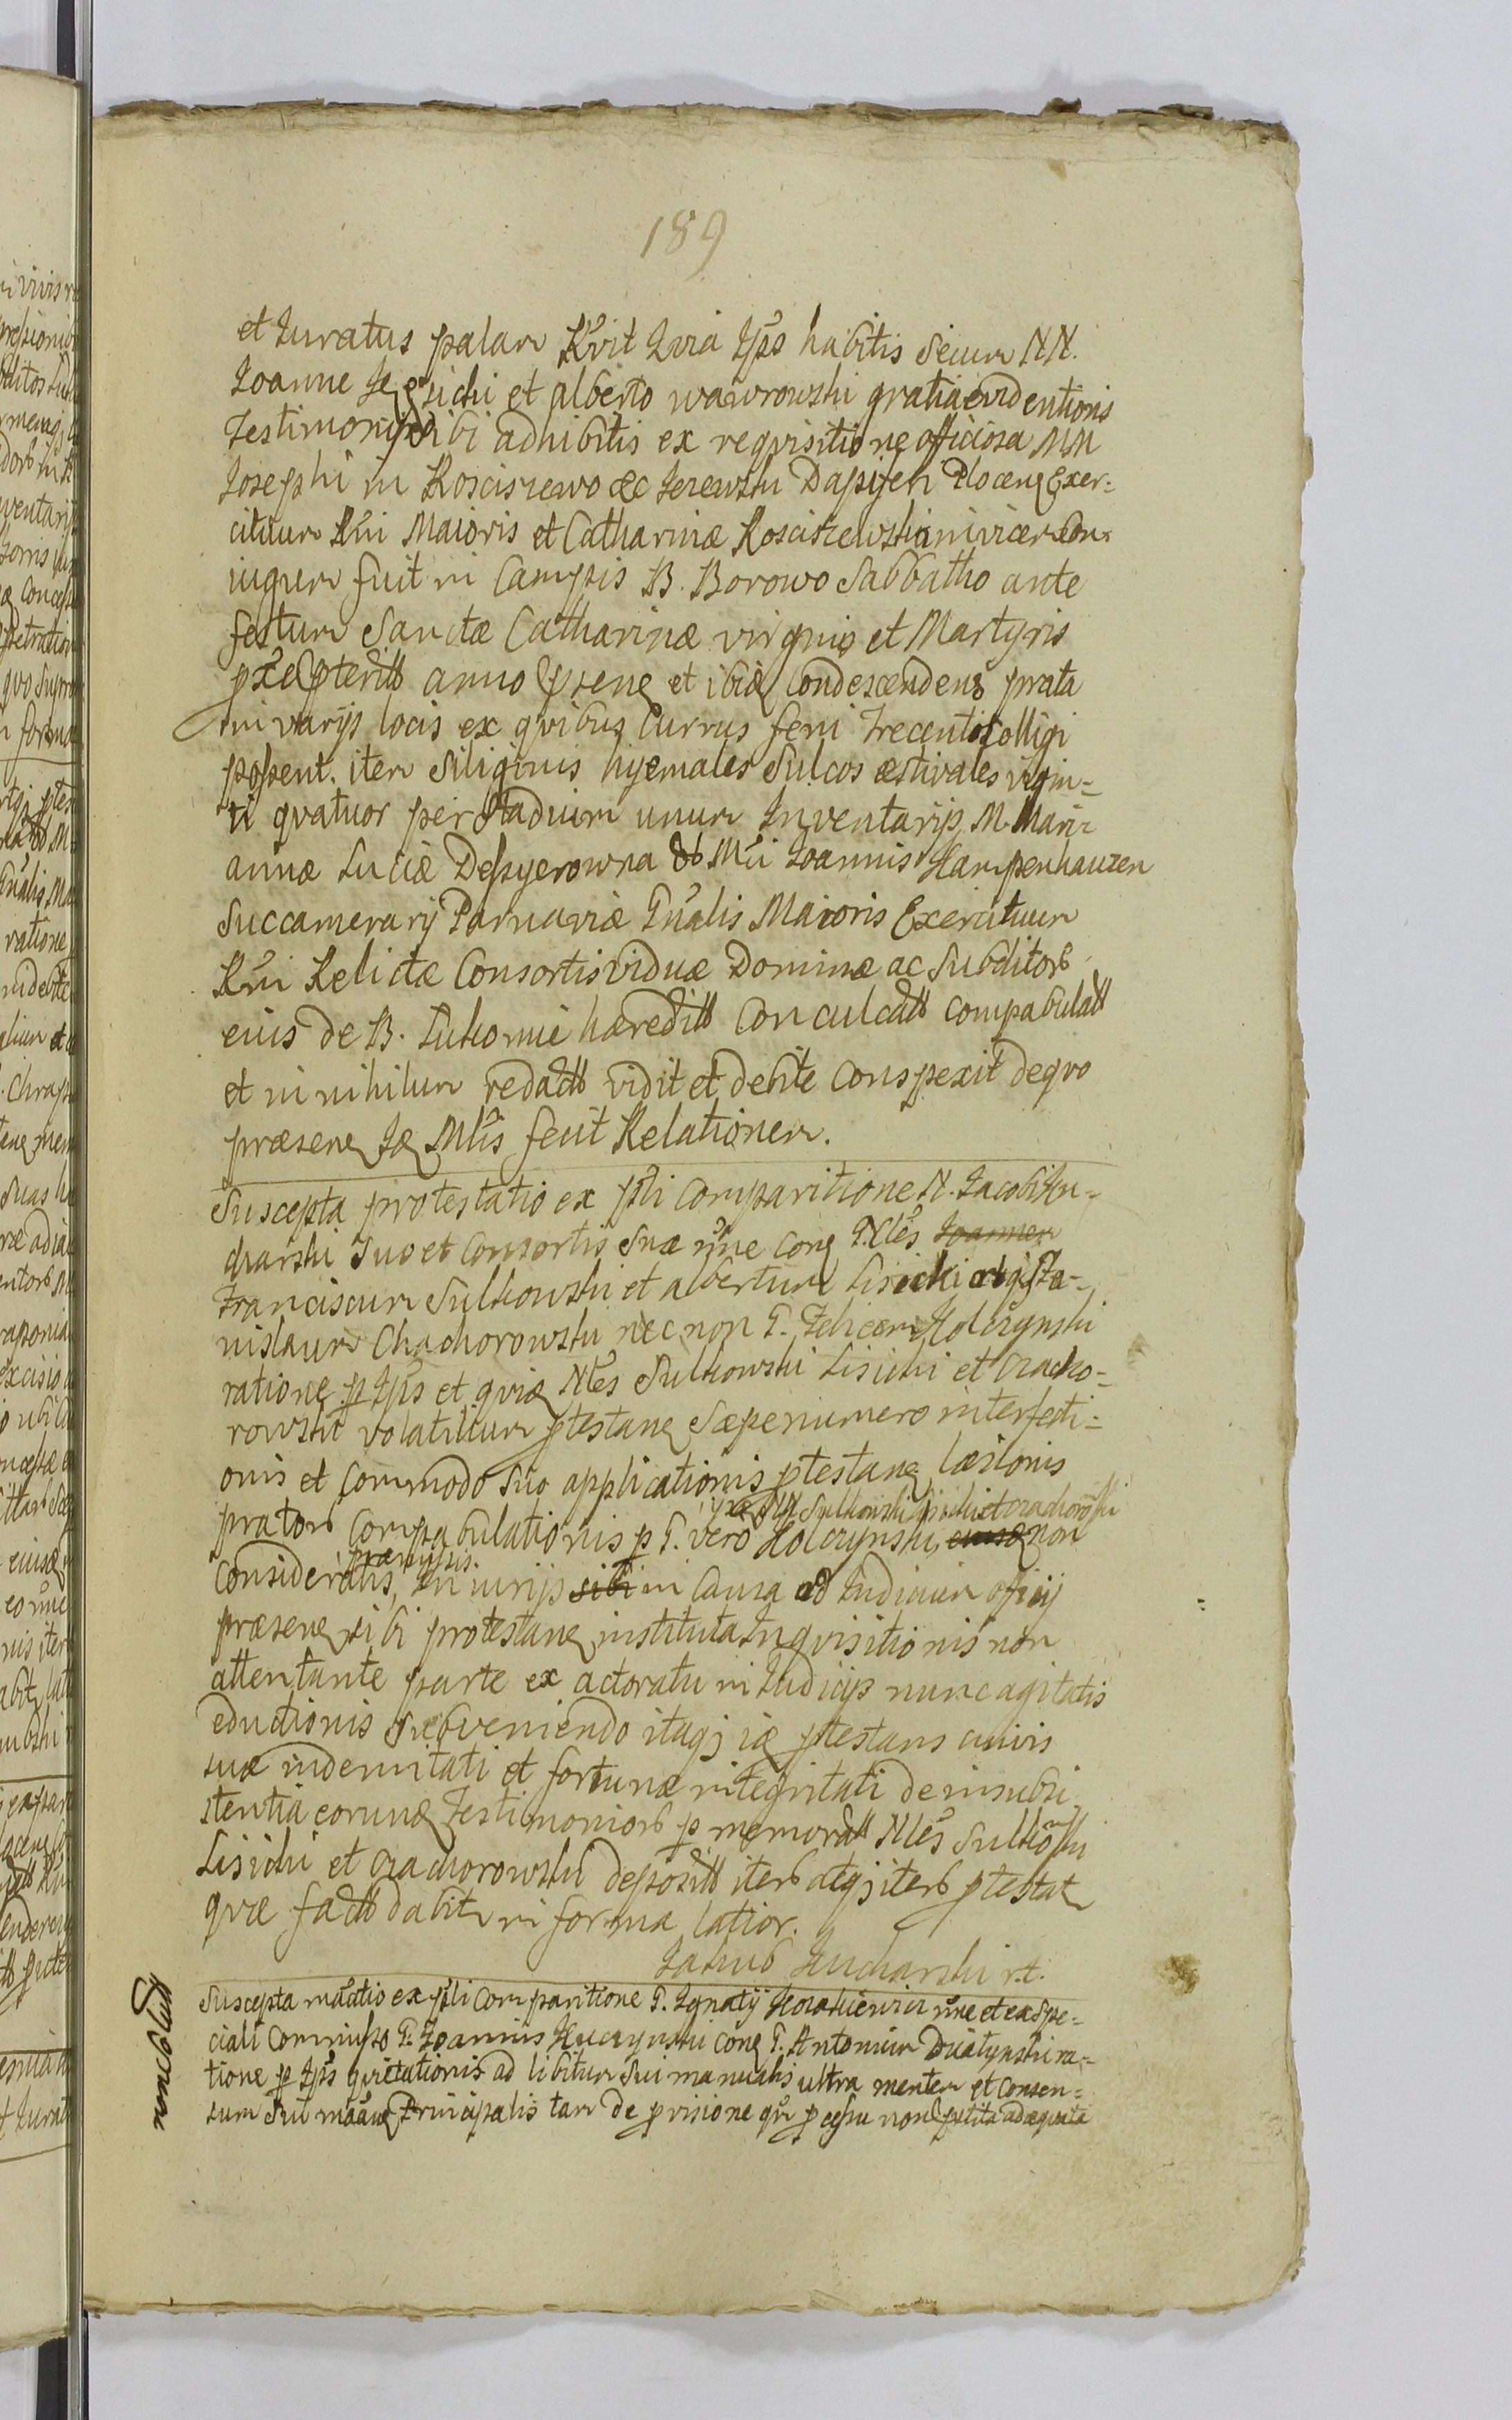 189
et Juratus palam Rvit Qvia Ips habitis secum NN.
Joanne et Alberto Wawrowski gratia evidentioris
Testimonij sibi adhibitis ex reqvisitione officiosa MM
Josephi in Kosciszewo &c Dapiferi Plocen Exer-
cituum Rni Maioris et Catharinæ Kosciszewskich invicem Con
iugum fuit in Campis B. Borowo Sabbatho ante
festum Sanctæ Catharinæ virginis et Martyris
anno et ibiq condescendens prata
in varijs locis ex qvibus Currus feni Trecenti Colligi
possent. item Siliginis hyemales Sulcos æstivales vigin-
ti qvatuor per Stadium unum Inventarijs M. Mari-
annæ Luciæ Desyerowna Mci Joannis Hampenhauzen
Succamerarij Parnaviæ Gnalis Maioris Exercituum
Rni Relictæ Consortis viduæ Dominæ ac Subditorb
eius de B. Sukomie hæreditt Conculcatt compabulatt
et in nihilum redactt vidit et debite Conspexit de qvo
præsens Mltis fecit Relationem.
Suscepta protestatio ex pli Comparitione N. Jacobi Ku-
charski Suo et Consortis Suæ nne Con G.Nles Joannem
Franciscum Sulkowski et Albertum Lisicki atqj Sta-
nislaum Chachorowski nec non G. Felicem Holczynski
ratione p Ips et qviq Nles Sulkowski Lisicki et Chacho-
rowski volatilium ptestan Sæpenumero interfecti-
onis et Commodo Suo applicationis ptestan læsionis
ipsoq Nll Sulkowski Lisicki et Chachorowski
pratorb Compabulationis p G. vero Holczynski, non
præmissis
Consideratis, Iniurijs sibi in Causa ad Judicium officij
præsens sibi protestan instituta Inqvisitionis non
attentante parte ex actoratu in Judicijs nunc agitatis
eductionis Subveniendo itaqj iq ptestans iuris
suæ indemnitati et fortunæ integritati de insubsi-
stentia eorunq Testimoniorb p memoratt Nles Sulkowski
Lisicki et Chachorowski depositt iterb atqj iterb ptestat
qvæ factt dabitr in forma latior.
Jakub Kucharski r.t.
nuncoptus
Suscepta mactio ex pli Comparitione G. Ignatij nne et ex Spe-
ciali Commisso G. Joannis Huczynski con G. Antonium Duczynski ra-
tione p Ips qvietationis ad libitum Sui manualis ultra mentem et Consen-
sum Sui Principalis tam de pvisione qm p cessu non petita adæquata